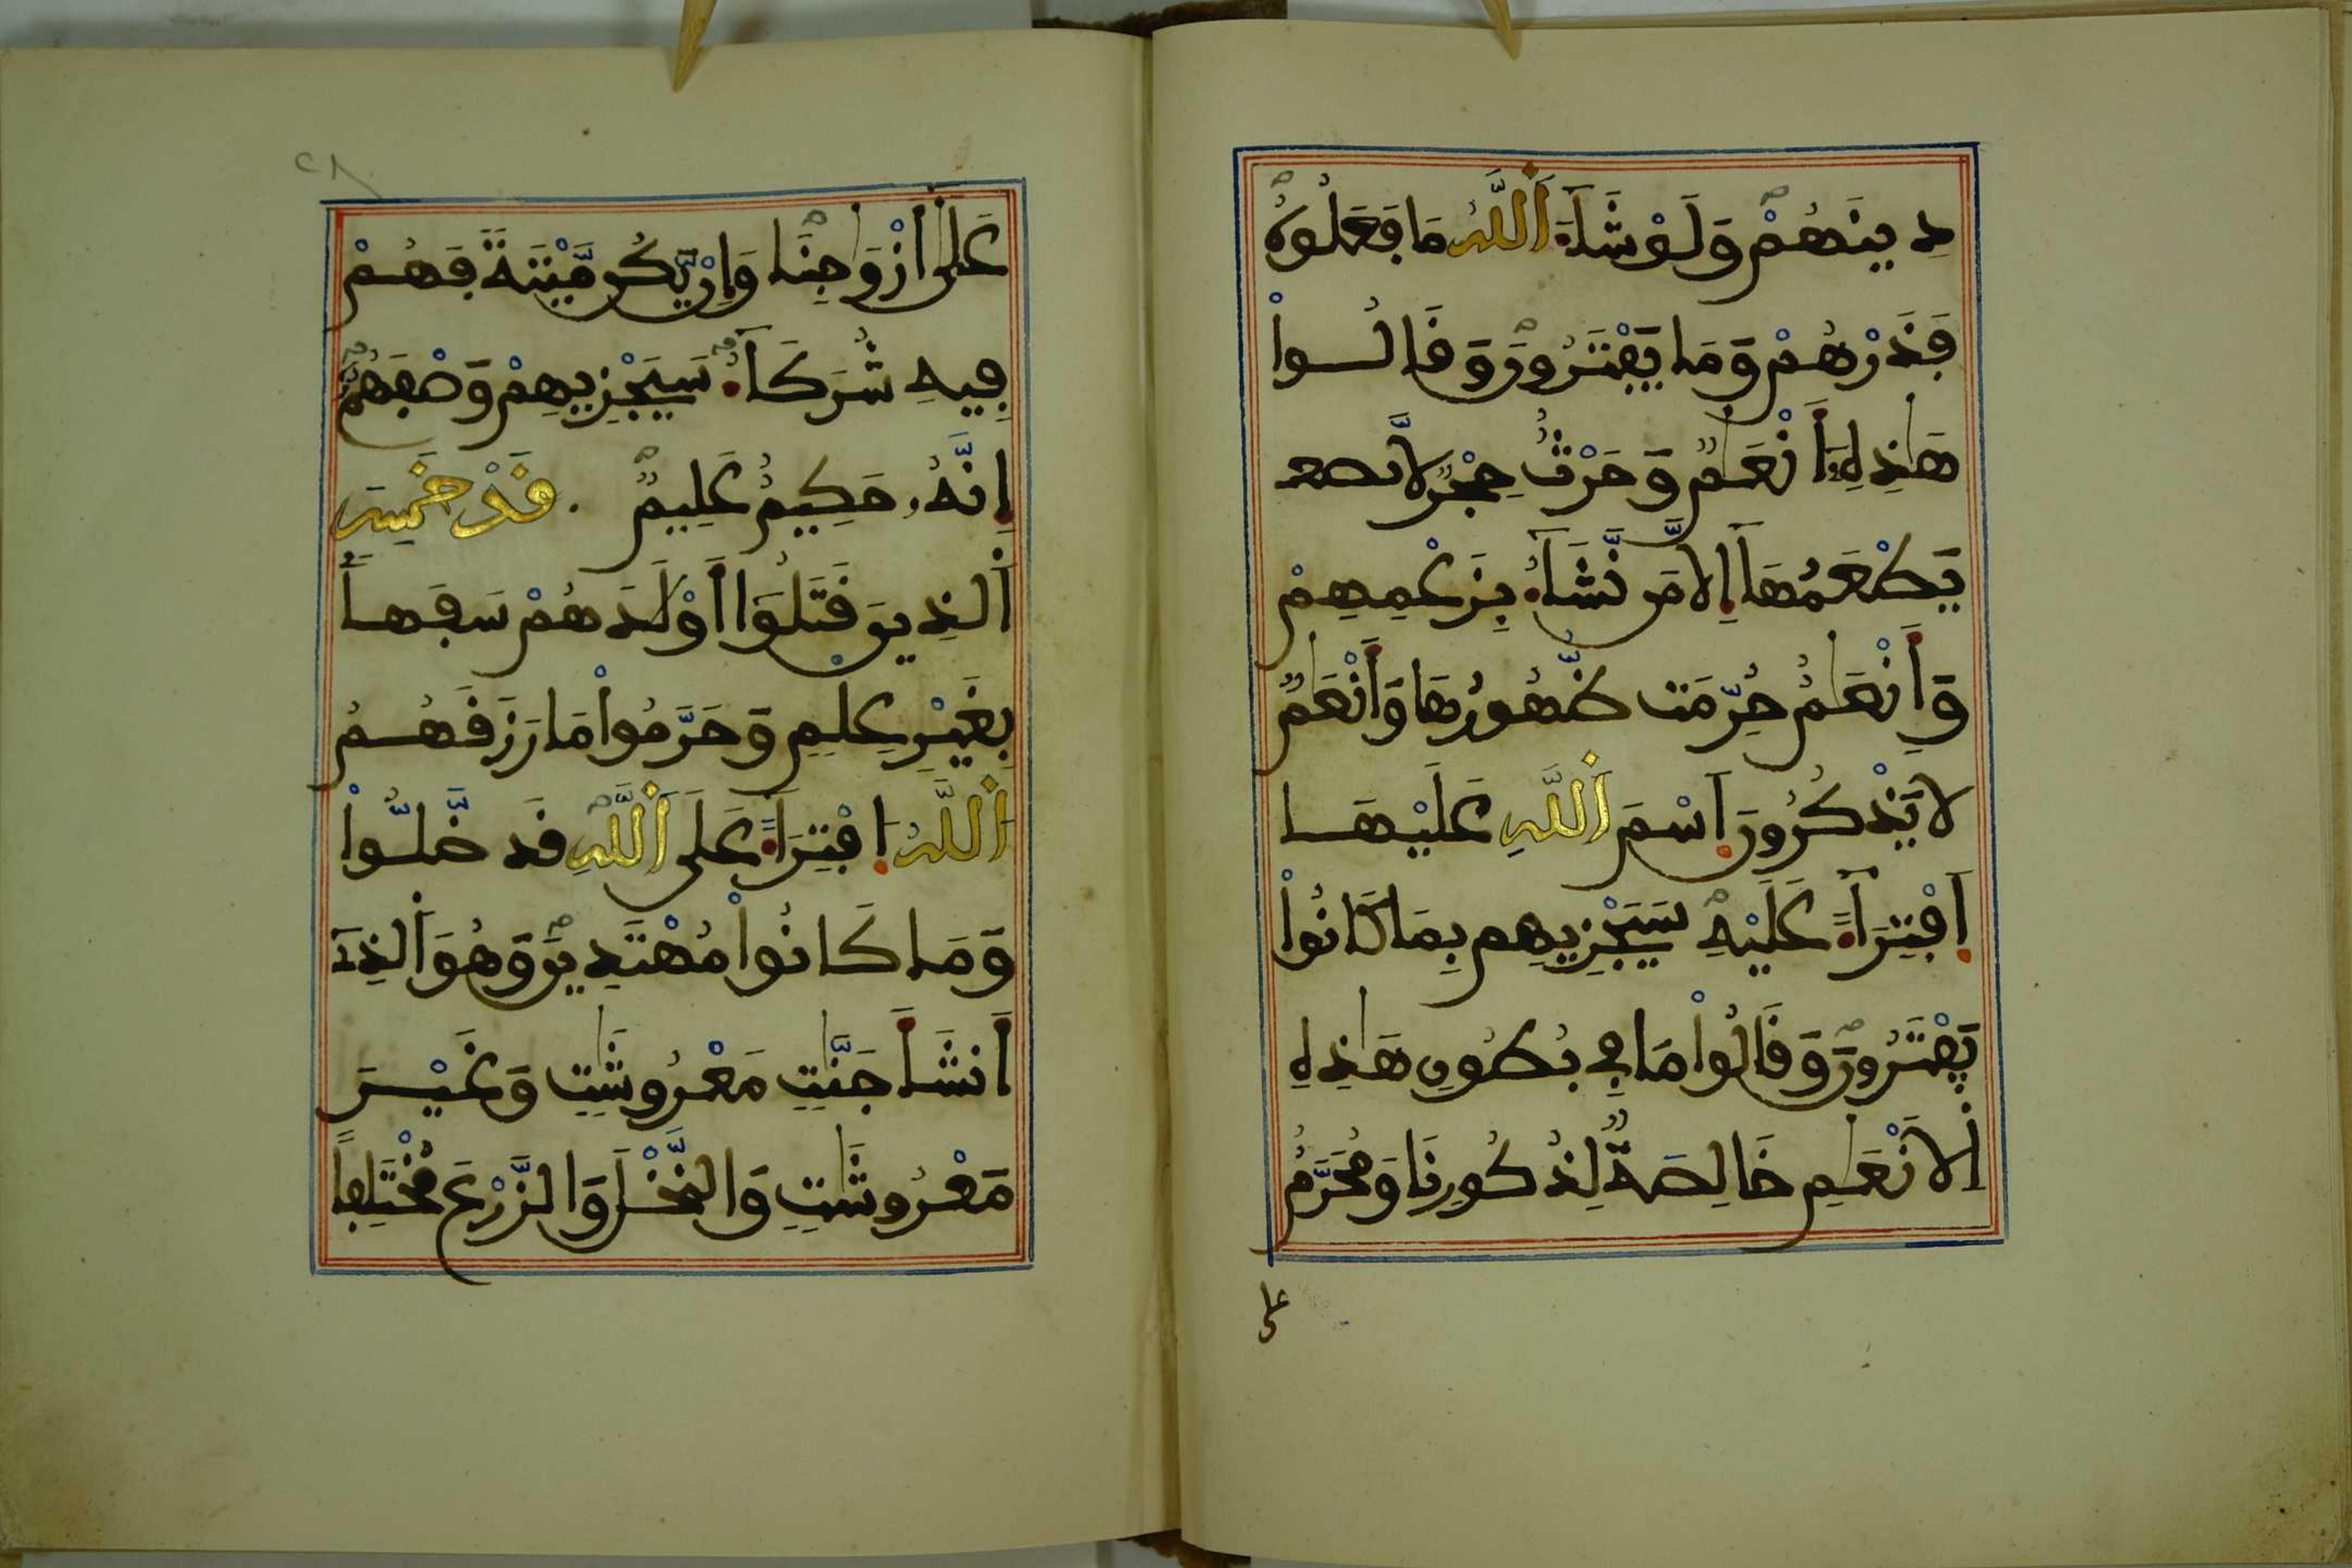 دِينَهُمْ وَلَوْ شَآءَ اَ۬للَّهُ مَا فَعَلُوهُ
فَذَرْهُمْ وَمَا يَفْتَرُونَ وَقَالُواْ
هَٰذِهِۦٓ أَنْعَٰمٌ وَحَرْثٌ حِجْرٌ لَّا
يَطْعَمُهَآ إِلَّا مَن نَّشَآءُ بِزَعْمِهِمْ
وَأَنْعَٰمٌ حُرِّمَت ظُّهُورُهَا وَأَنْعَٰمٌ
لَا يَذْكُرُونَ اَ۪سْمَ اَ۬للَّهِ عَلَيْهَا
اَ۪فْتِرَآءً عَلَيْهِ سَيَجْزِيهِم بِمَا كَانُواْ
يَفْتَرُونَ وَقَالُواْ مَا فِي بُطُونِ هَٰذِهِ
اِ۬لَانْعَٰمِ خَالِصَةٌ لِّذُكُورِنَا وَمُحَرَّمٌ
على
٢٨
عَلَىٰ أَزْوَٰجِنَا وَإِنْ يَّكُن مَّيْتَةً فَهُمْ
فِيهِ شُرَكَآءُ سَيَجْزِيهِمْ وَصْفَهُمْ
إِنَّهُۥ حَكِيمٌ عَلِيمٌ قَدْ خَسِرَ
اَ۬لذِينَ قَتَلُوٓاْ أَوْلَٰدَهُمْ سَفَهاً
بِغَيْرِ عِلْمٍ وَحَرَّمُواْ مَا رَزَقَهُمُ
اُ۬للَّهُ اُ۪فْتِرَآءً عَلَى اَ۬للَّهِ قَد ضَّلُّواْ
وَمَا كَانُواْ مُهْتَدِينَ وَهُوَ اَ۬لذِےٓ
أَنشَأَ جَنَّٰتٍ مَّعْرُوشَٰتٍ وَغَيْرَ
مَعْرُوشَٰتٍ وَالنَّخْلَ وَالزَّرْعَ مُخْتَلِفاً